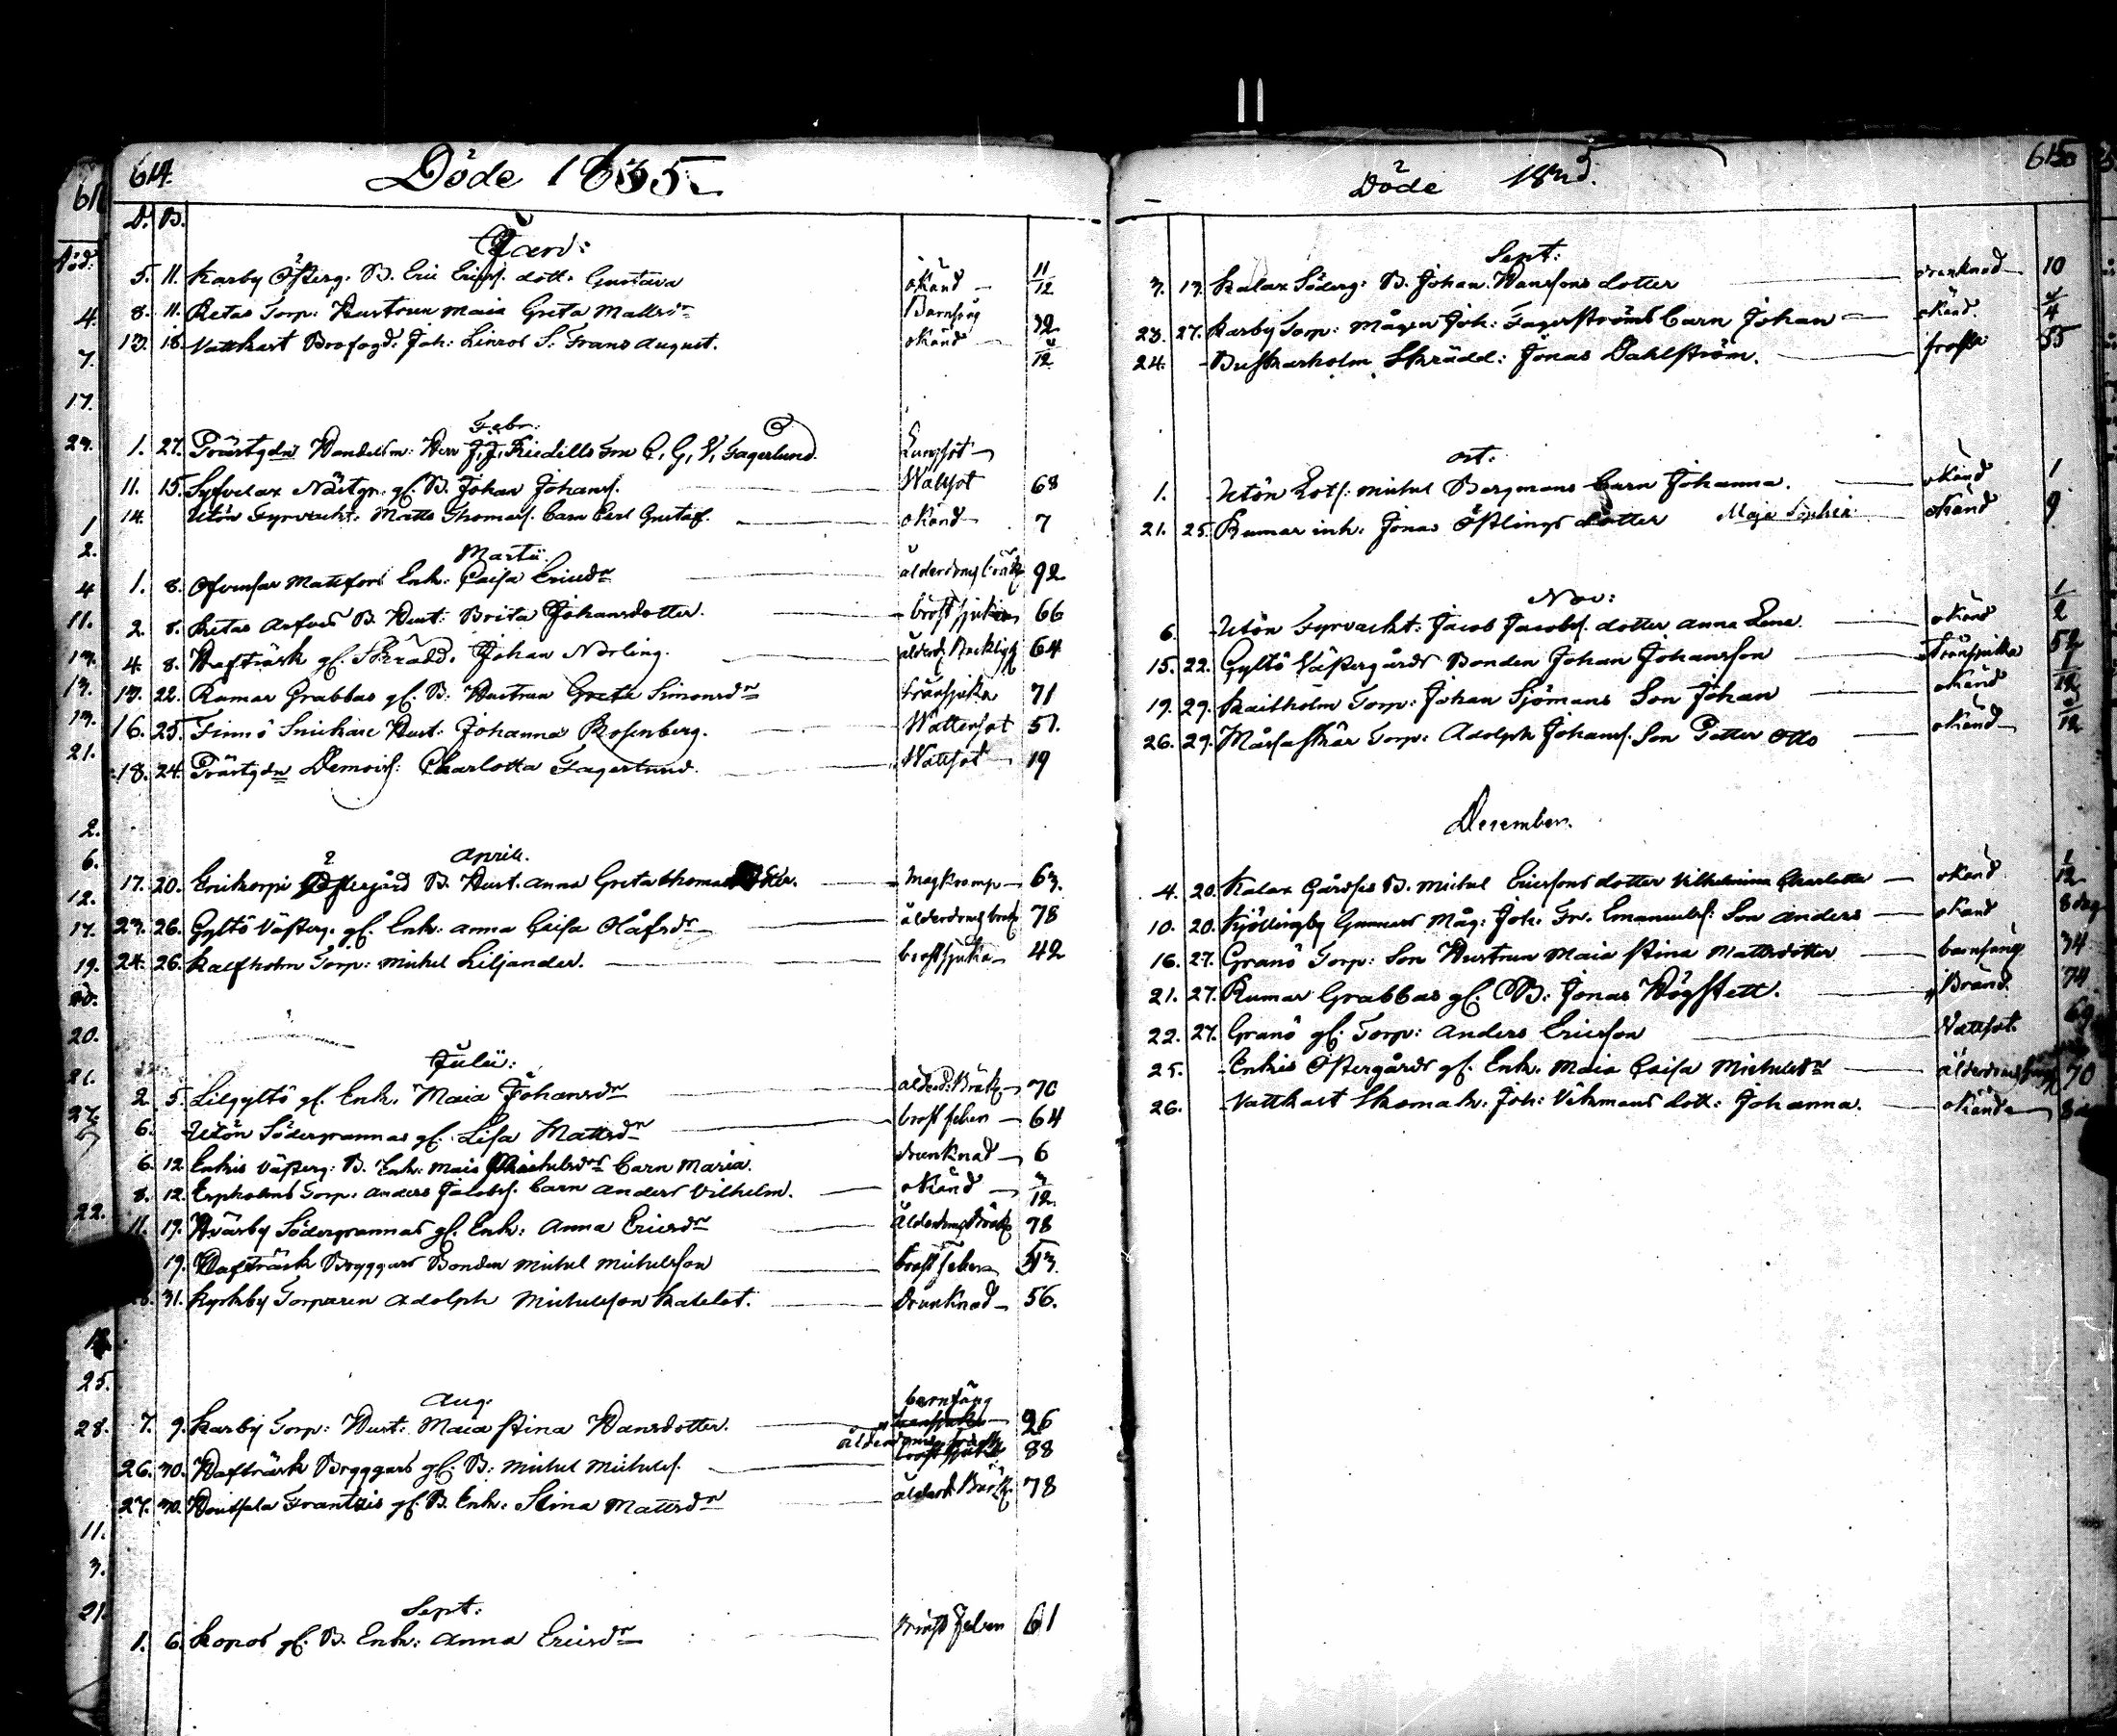 614.
Döde 1835.
D. B.
Jan:
5. 11. Karby Österg: B. Eric Ericss. dott. Gustava okänd 11/12
8. 11. Retas Torp: Hustrun Maia Greta Mattsdr Barnsäng 32
13. 18. Vattkast Brofogd. Joh: Linros S. Frans August. okänd /12
Febr:
1. 27. Prästgdn Handelsm: Herr J. J. Fru C. G. V. Fagerlund. Lungsot
11. 15. Syfvelax Nästgn. gl. B. Johan Johanss. Wattsot 68
14. Utön Fyrvackt: Matts Thomass. barn Carl Gustaff. okänd 7
Martii
1. 8. Ofvensar Mattsfors Enk: Caisa Ericdr ålderdoms bräk 92
2. 8. Retas Arfvas B. Hust: Brita Johansdotter. bröstsjukan 66
4. 8. Haftträsk gl. Skrädd. Johan Norling. ålderd. 64
13. 22. Rumar Grabbas gl. B. Hustrun Greta Simonsdr Tränsjuka 71
16. 25. Finnö Snickare Hust: Johanna Rosenberg. Wattensot 51.
18. 24. Prästgdn Demois: Charlotta Fagerlund. Wattsot 19
April.
17. 20. Erikorpi Östergård B. Hust. Anna Greta Thomas Magkramp 63.
23. 26. Gyltö Västerg. gl. Enk: Anna Caisa Olåfsdr ålderdoms bräk 78
24. 26. Kalfholm Torp: Michel Liljander. bröstsjuka 42
Julii:
2 5. Lilgyltö gl. Enk. Maia Johansdr ålderd: Bräk 70
6. Utön Södergrannas gl. Lisa Mattsdr bröstfeber 64
6. 12. Enkis Västerg: B. Enk: Maia Michelsdrs barn Maria. drunknad 6
8. 12. Erpholms Torp. Anders Jacobss. barn Anders Vilhelm. okänd 3/12
11. 19. Hvärby Södergrannas gl. Enk: Anna Ericsdr Ålderdoms Bräk 78
19. Haftträsk Bryggars Bonden Michel Michelsson bröstfeber 53.
31. Kyrkby Torparen Adolph Michelsson Kalelot. Drunknad 56.
Aug.
7. 9. Karby Torp: Hust: Maia Stina Hansdotter. barnsäng 26
26. 30. Haftträsk Bryggars gl. B: Michel Michelss. ålderdoms bräck 88
27. 30. Houtsala Frantsis gl. B. Enk: Stina Mattsdr ålderd. Bräk 78
Sept:
1. 6. Kopos gl. B. Enk: Anna Ericsdr Bröst feber 61
Döde 1835.
615
Sept:
3. 13. Kalax Söderg: B. Johan Hanssons dotter drunknad 10
23. 27. Karby Torp: Mågen Joh: Fagerströms barn Johan okänd. /4
24. Buskarholm Skrädd: Jonas Dahlström. frossa 55
Oct:
1. Utön Lots: Michel Bergmans barn Johanna. okänd 1
21. 25. Rumar inh. Jonas Östlings dotter Maja Sophia okänd 9
Nov:
6. Utön Fyrvackt: Jacob Jacobss. dotter Anna Lena okänd 1/2
15. 22. Gyltö Västergårds Bonden Johan Johansson Tränsjuka 52
19. 29. Kailholm Torp: Johan Sjömans Son Johan okänd 1/12
26. 29. Måssaskär Torp: Adolph Johanss. Son Petter Otto okänd /12
December.
4. 20. Kalax Gårdsis B. Michel Ericssons dotter Vilhelmina Charlotta okänd 1/12
10. 20. Kjöllingby Gunnars Måg: Joh. Fr. Emanuelss. Son Anders okänd 8 dag
16. 27. Granö Torp: Son Hustrun Maia Stina Mattsdotter barnsäng 34
21. 27. Rumar Grabbas gl. B: Jonas Högstett. Bränd. 74
22. 27. Granö gl. Torp: Anders Ericsson Vattsot. 69
25. Enkis Östergårds gl. Enk. Maia Caisa Michelsdr 70
26. Vattkast Skomak. Joh: Vikmans dott: Johanna. okände 8